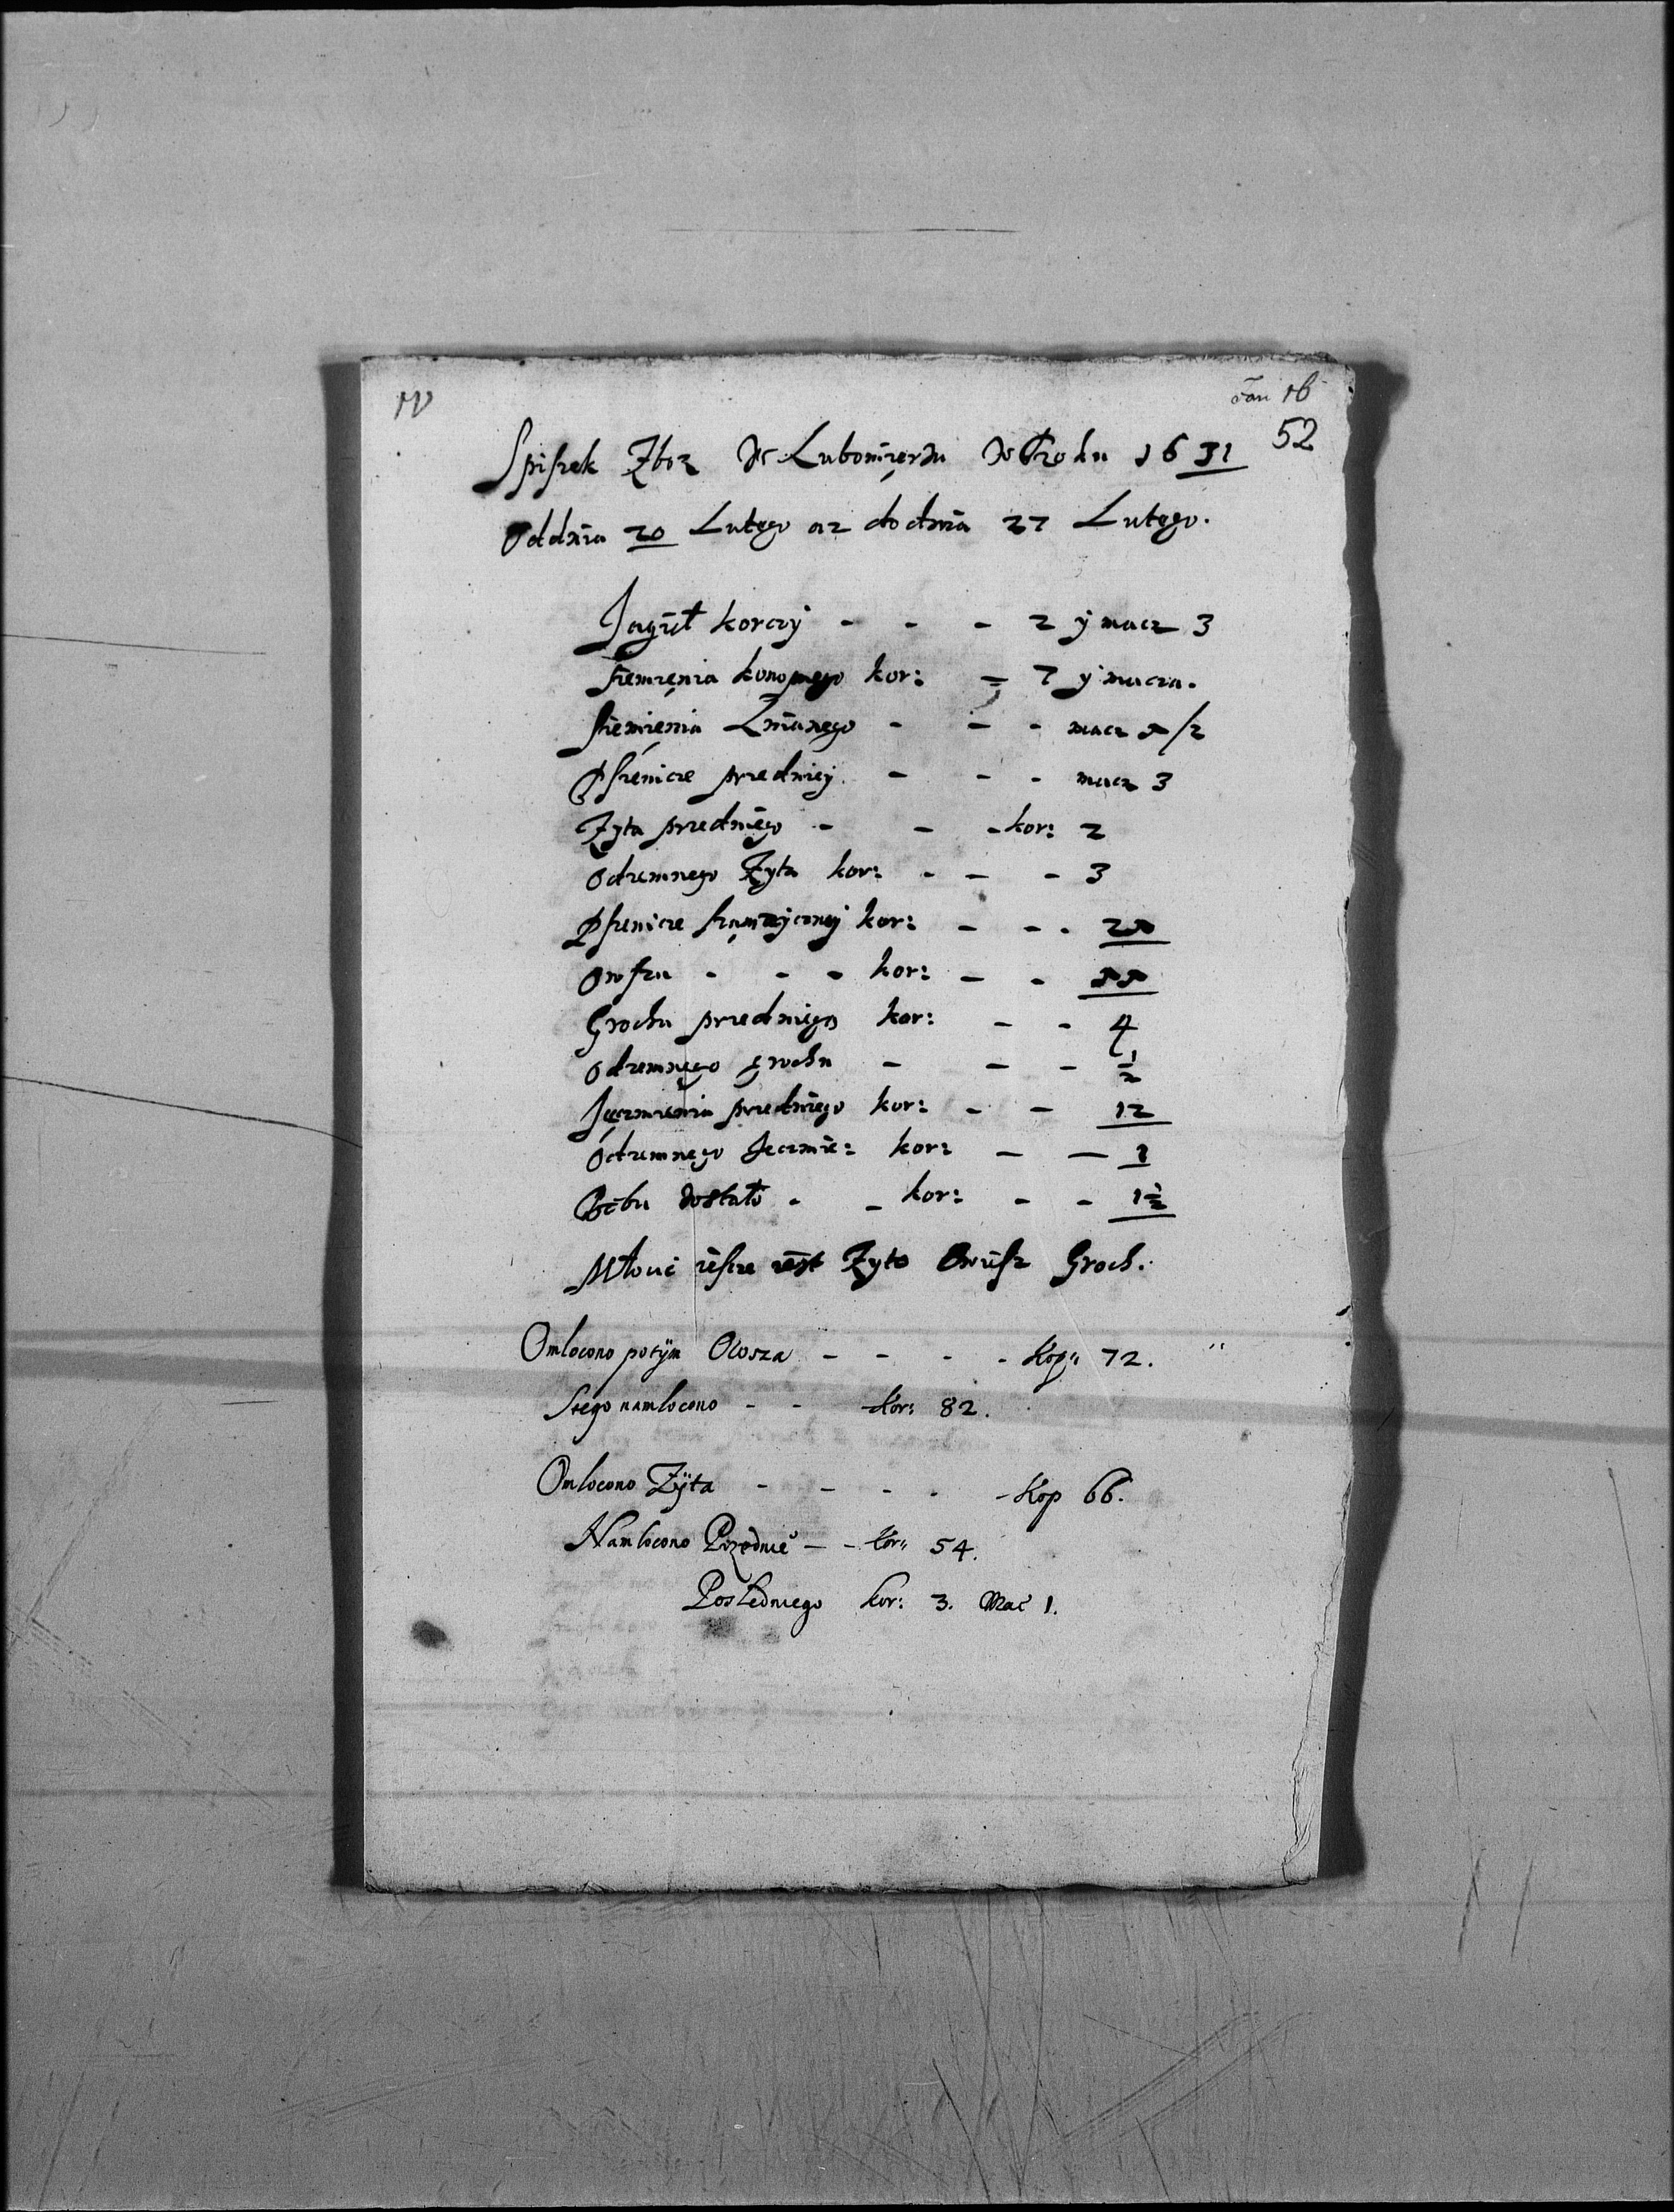 52
Spiszek Zboz We Lubomierzu W Roku 1631
Oddnia 20 Lutego az do dnia 27 Lutego.
Jagieł korczy - - - 2 y macz 3
siemienia konopnego kor: - 7 y macza.
siemienia Lnianego - - - macz 1/2
Pszenicze przedniey - - - macz 3
Zyta przedniego - - - kor: 2
Odzemnego Zyta kor: - - - 3
Pszenicze kor: - - -
Owsza - - - kor: - -
Grochu przedniego kor: - - 4
Odzemnego grochu - - - 1/2
Jęczmienia przedniego kor: - - 12
Odzemnego Jeczmie: kor: - - 1
Bobu dostało - - kor: - - 1 1/2
Młoci iescze iest Zyto Owiesz Groch.
Omłocono potÿm Owsza - - - - Kop: 72.
Stego namłocono - - Kor: 82.
Omłocono Zÿta - - - - - Kop 66.
Namłocono Przednie - - Kor: 54.
Posledniego kor: 3. Mac 1.